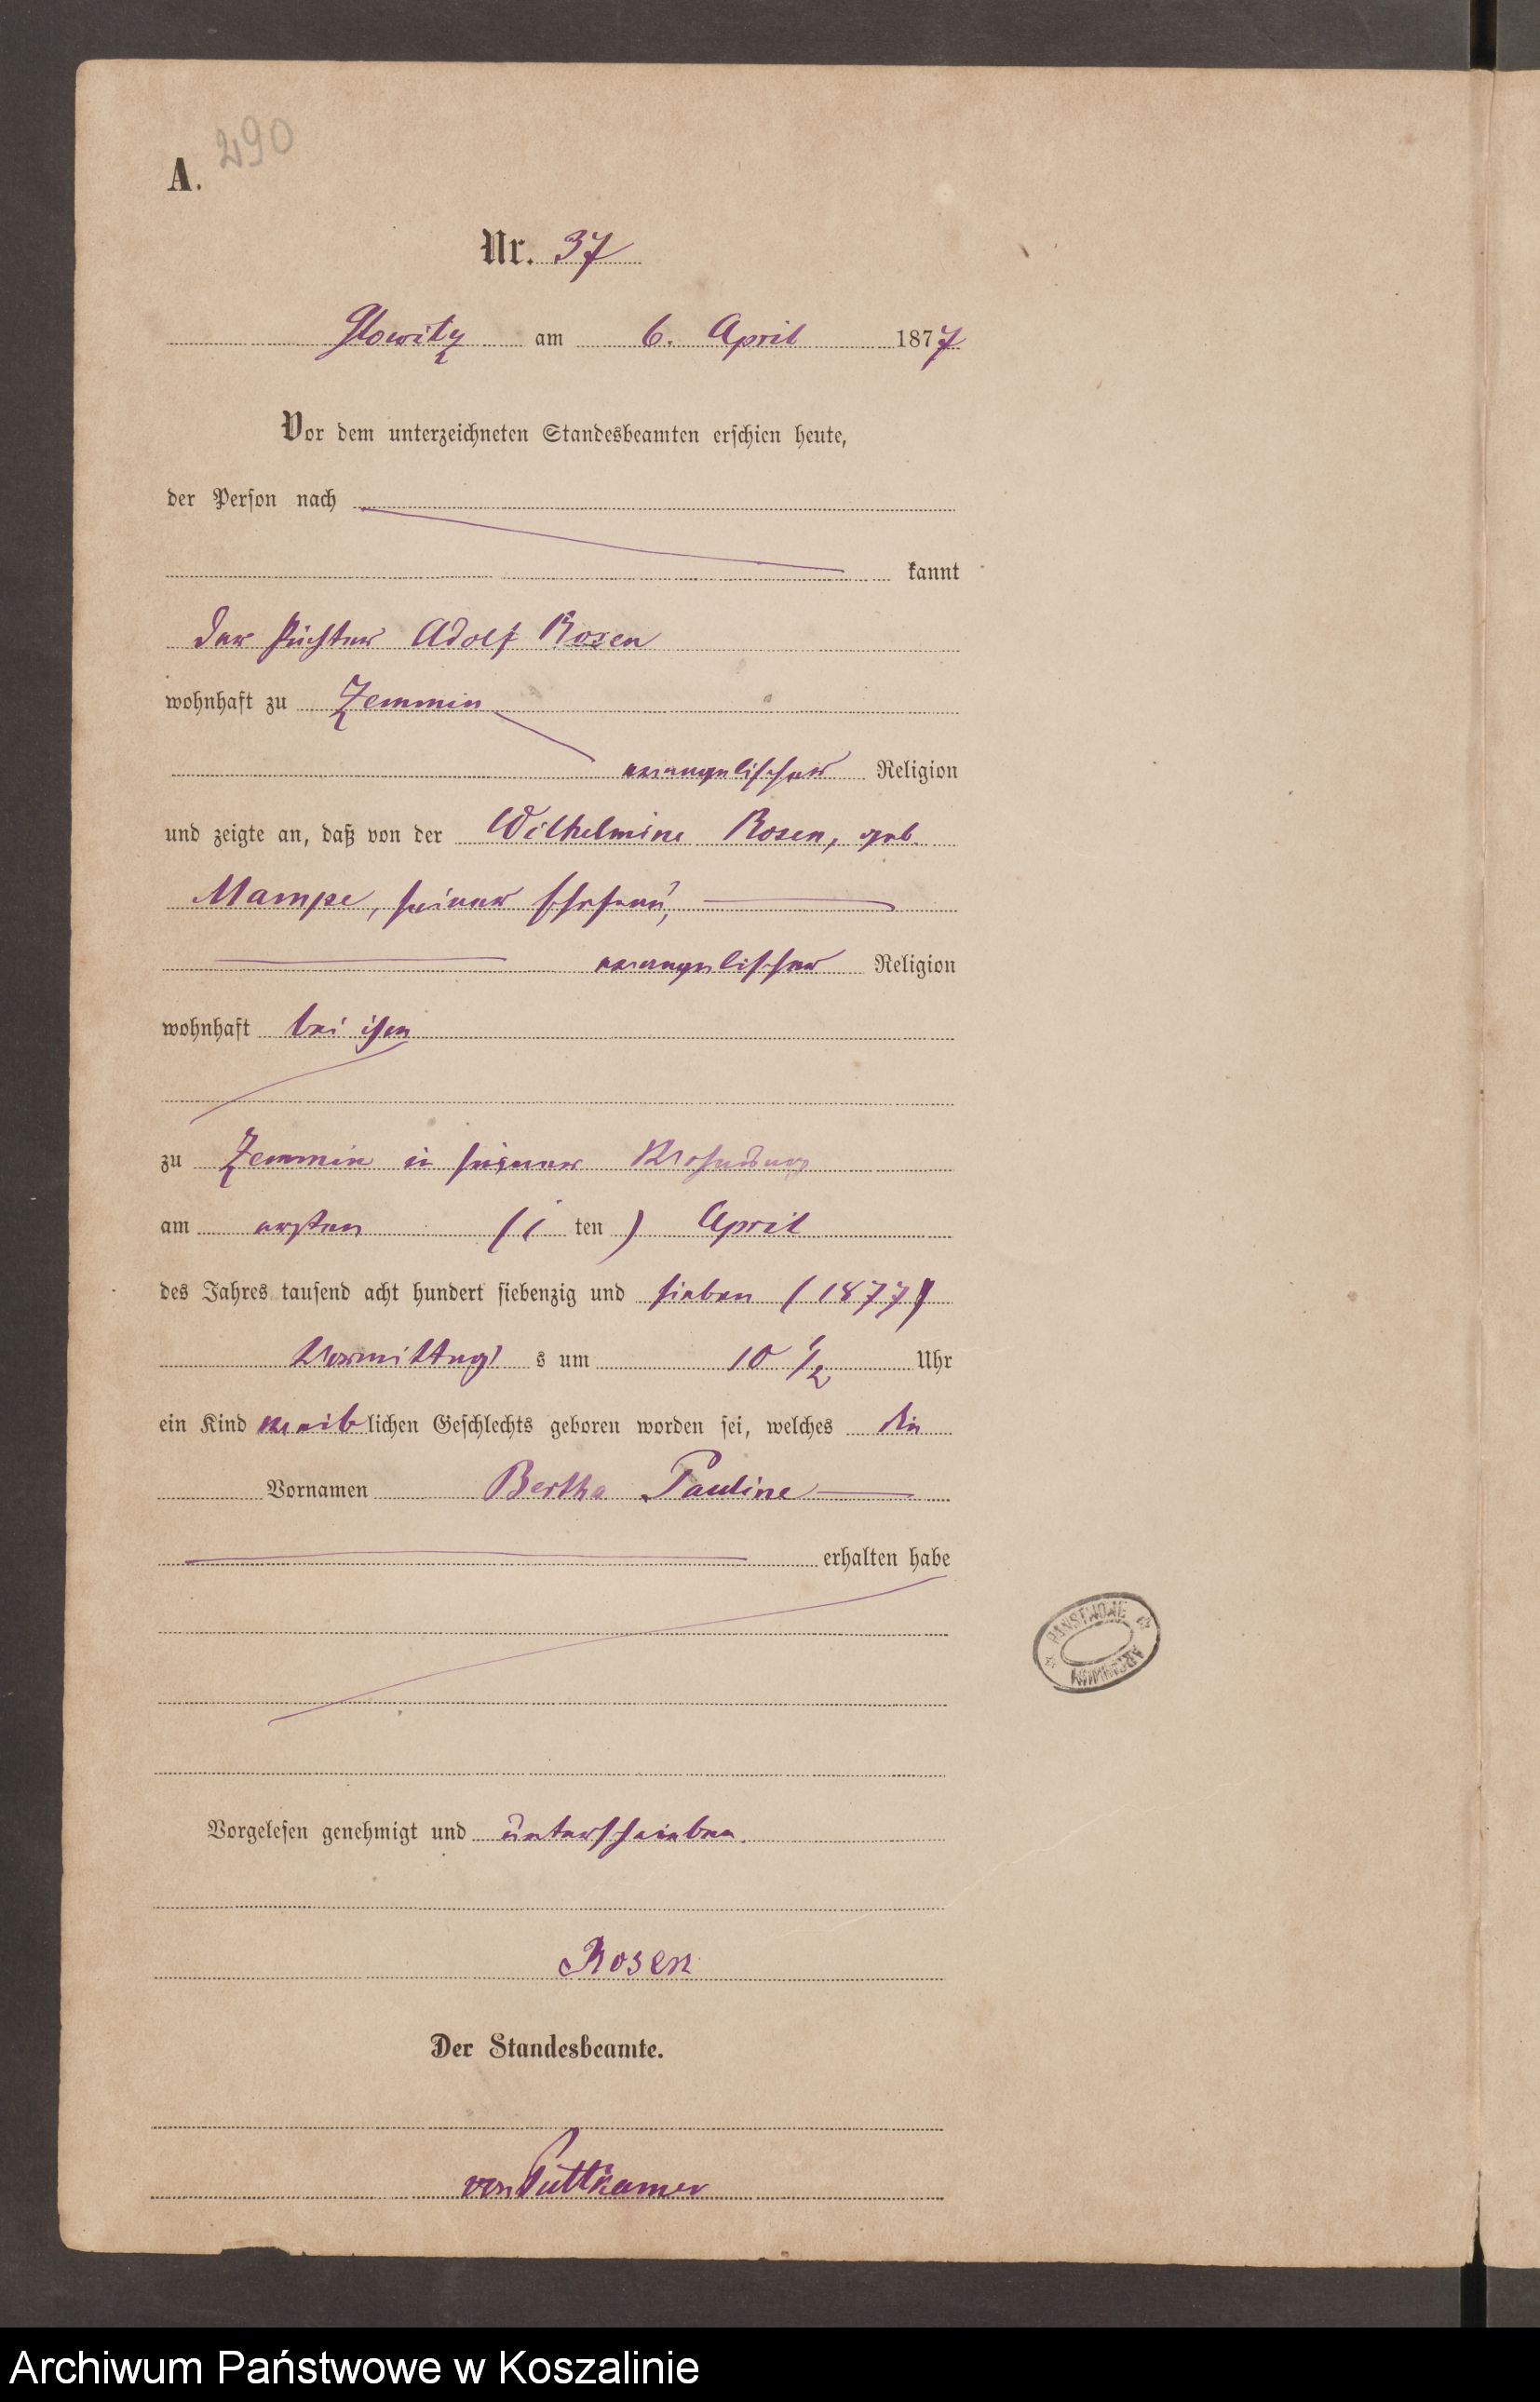 290
A.
Nr. 37
Glowitz am 6. April 1877
Vor dem unterzeichneten Standesbeamten erschien heute,
der Person nach
kannt
der Pächter Adolf Rosen
wohnhaft zu Zemmin
evangelischer Religion
und zeigte an, daß von der Wilhelmine Rosen, geb.
Mampe, seiner Ehefrau,
evangelischer Religion
wohnhaft bei ihm
zu Zemmin in seiner Wohnung
am ersten (1 ten) April
des Jahres tausend acht hundert siebenzig und sieben (1877)
Vormittag s um 10 1/2 Uhr
ein Kind weiblichen Geschlechts geboren worden sei, welches die
Vornamen Bertha Pauline
erhalten habe
PAŃSTWOWE ARCHIWUM
Vorgelesen genehmigt und unterschrieben.
Rosen
Der Standesbeamte.
von Puttkamer
Archiwum Państwowe w Koszalinie